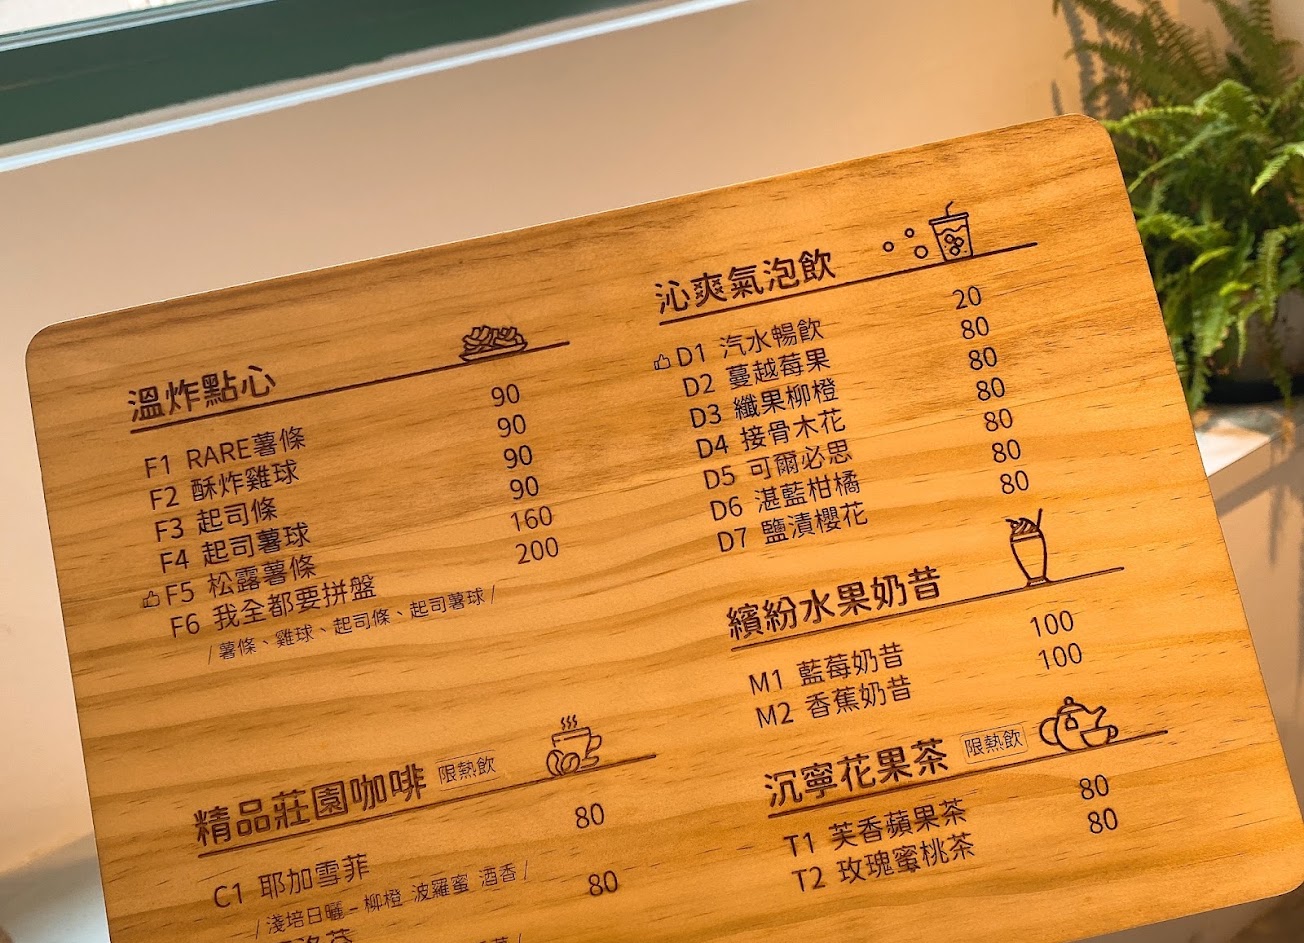 溫炸點心
F1 RARE薯條 90
F2 酥炸雞球 90
F3 起司條 90
F4 起司薯球 90
F5 松露薯條 160
F6 我全都要拼盤 200
/ 薯條、雞球、起司條、起司薯球 /
精品莊園咖啡 限熱飲
C1 耶加雪菲 80
/ 淺培日曬 - 柳橙 波羅蜜 酒香 /
80
沁爽氣泡飲
D1 汽水暢飲 20
D2 蔓越莓果 80
D3 纖果柳橙 80
D4 接骨木花 80
D5 可爾必思 80
D6 湛藍柑橘 80
D7 鹽漬櫻花 80
繽紛水果奶昔
M1 藍莓奶昔 100
M2 香蕉奶昔 100
沉寧花果茶 限熱飲
T1 芙香蘋果茶 80
T2 玫瑰蜜桃茶 80